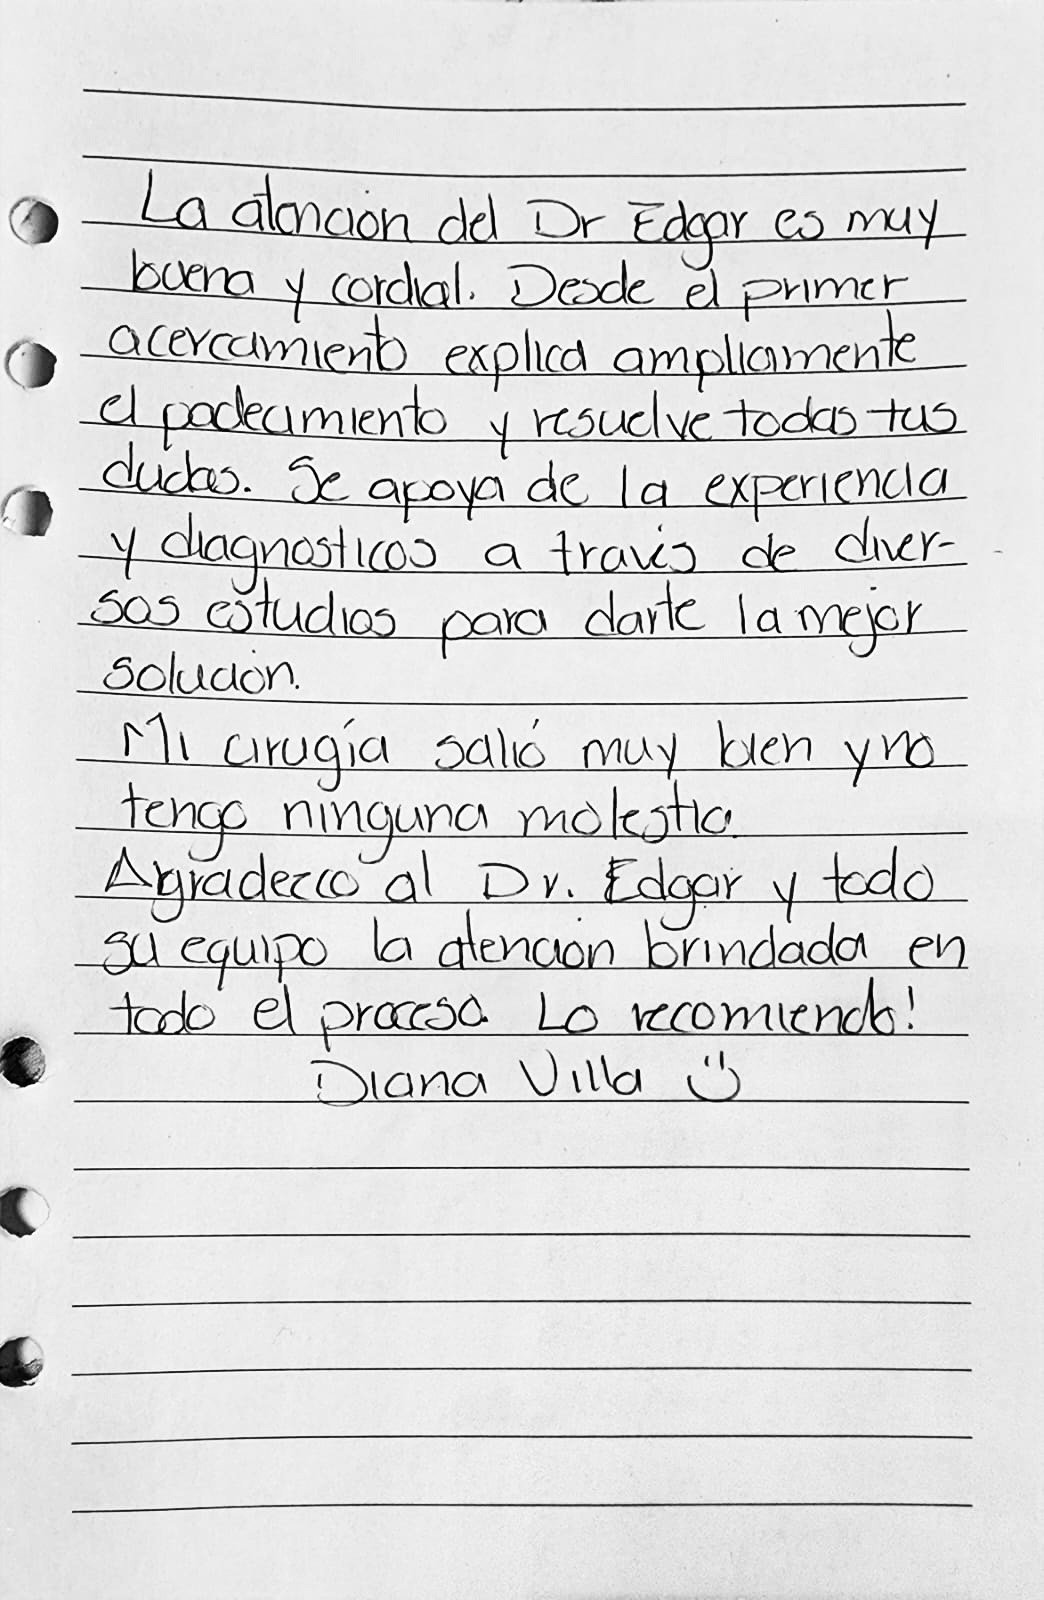 La atención del Dr Edgar es muy
buena y cordial. Desde el primer
acercamiento explica ampliamente
el padecimiento y resuelve todas tus
dudas. Se apoya de la experiencia
y diagnosticos a través de diver-
sos estudios para darte la mejor
solución.
Mi cirugía salió muy bien y no
tengo ninguna molestia.
Agradezco al Dr. Edgar y todo
su equipo la atención brindada en
todo el proceso. Lo recomiendo!
Diana Villa